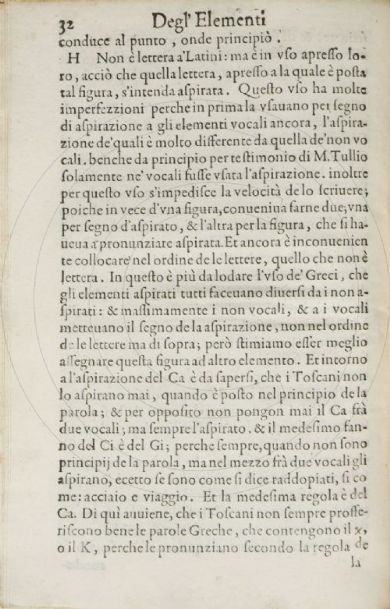 32 Degl' Elementi
conduce al punto, onde principiò.
H Non è lettera a' Latini: ma è in vso apresso lo-
ro, acciò che quella lettera, apresso a la quale è posta
tal figura, s'intenda aspirata. Questo vso ha molte
imperfezzioni perche in prima la vsauano per segno
di aspirazione a gli elementi vocali ancora, l'aspira-
zione de' quali è molto differente da quella de' non vo
cali. benche da principio per testimonio di M. Tullio
solamente ne' vocali fusse vsata l'aspirazione. inoltre
per questo vso s'impedisce la velocità de lo scriuere;
poiche in vece d'vna figura, conueniua farne due; vna
per segno d'aspirato, & l'altra per la figura, che si ha-
ueua a pronunziare aspirata. Et ancora è inconuenien
te collocare nel ordine de le lettere, quello che non è
lettera. In questo è più da lodare l'vso de' Greci, che
gli elementi aspirati tutti faceuano diuersi da i non a-
spirati: & massimamente i non vocali, & a i vocali
metteuano il segno de la aspirazione, non nel ordine
de le lettere ma di sopra; però stimiamo esser meglio
assegnare questa figura ad altro elemento. Et intorno
a l'aspirazione del Ca è da sapersi, che i Toscani non
lo aspirano mai, quando è posto nel principio de la
parola; & per opposito non pongon mai il Ca frà
due vocali; ma sempre l'aspirato. & il medesimo fan-
no del Ci è del Gi; perche sempre, quando non sono
principij de la parola, ma nel mezzo frà due vocali gli
aspirano, ecetto se sono come si dice raddopiati, si co
me: acciaio e viaggio. Et la medesima regola è del
Ca. Di quì auuiene, che i Toscani non sempre proffe-
riscono bene le parole Greche, che contengono il χ,
o il K, perche le pronunziano secondo la regola de
la